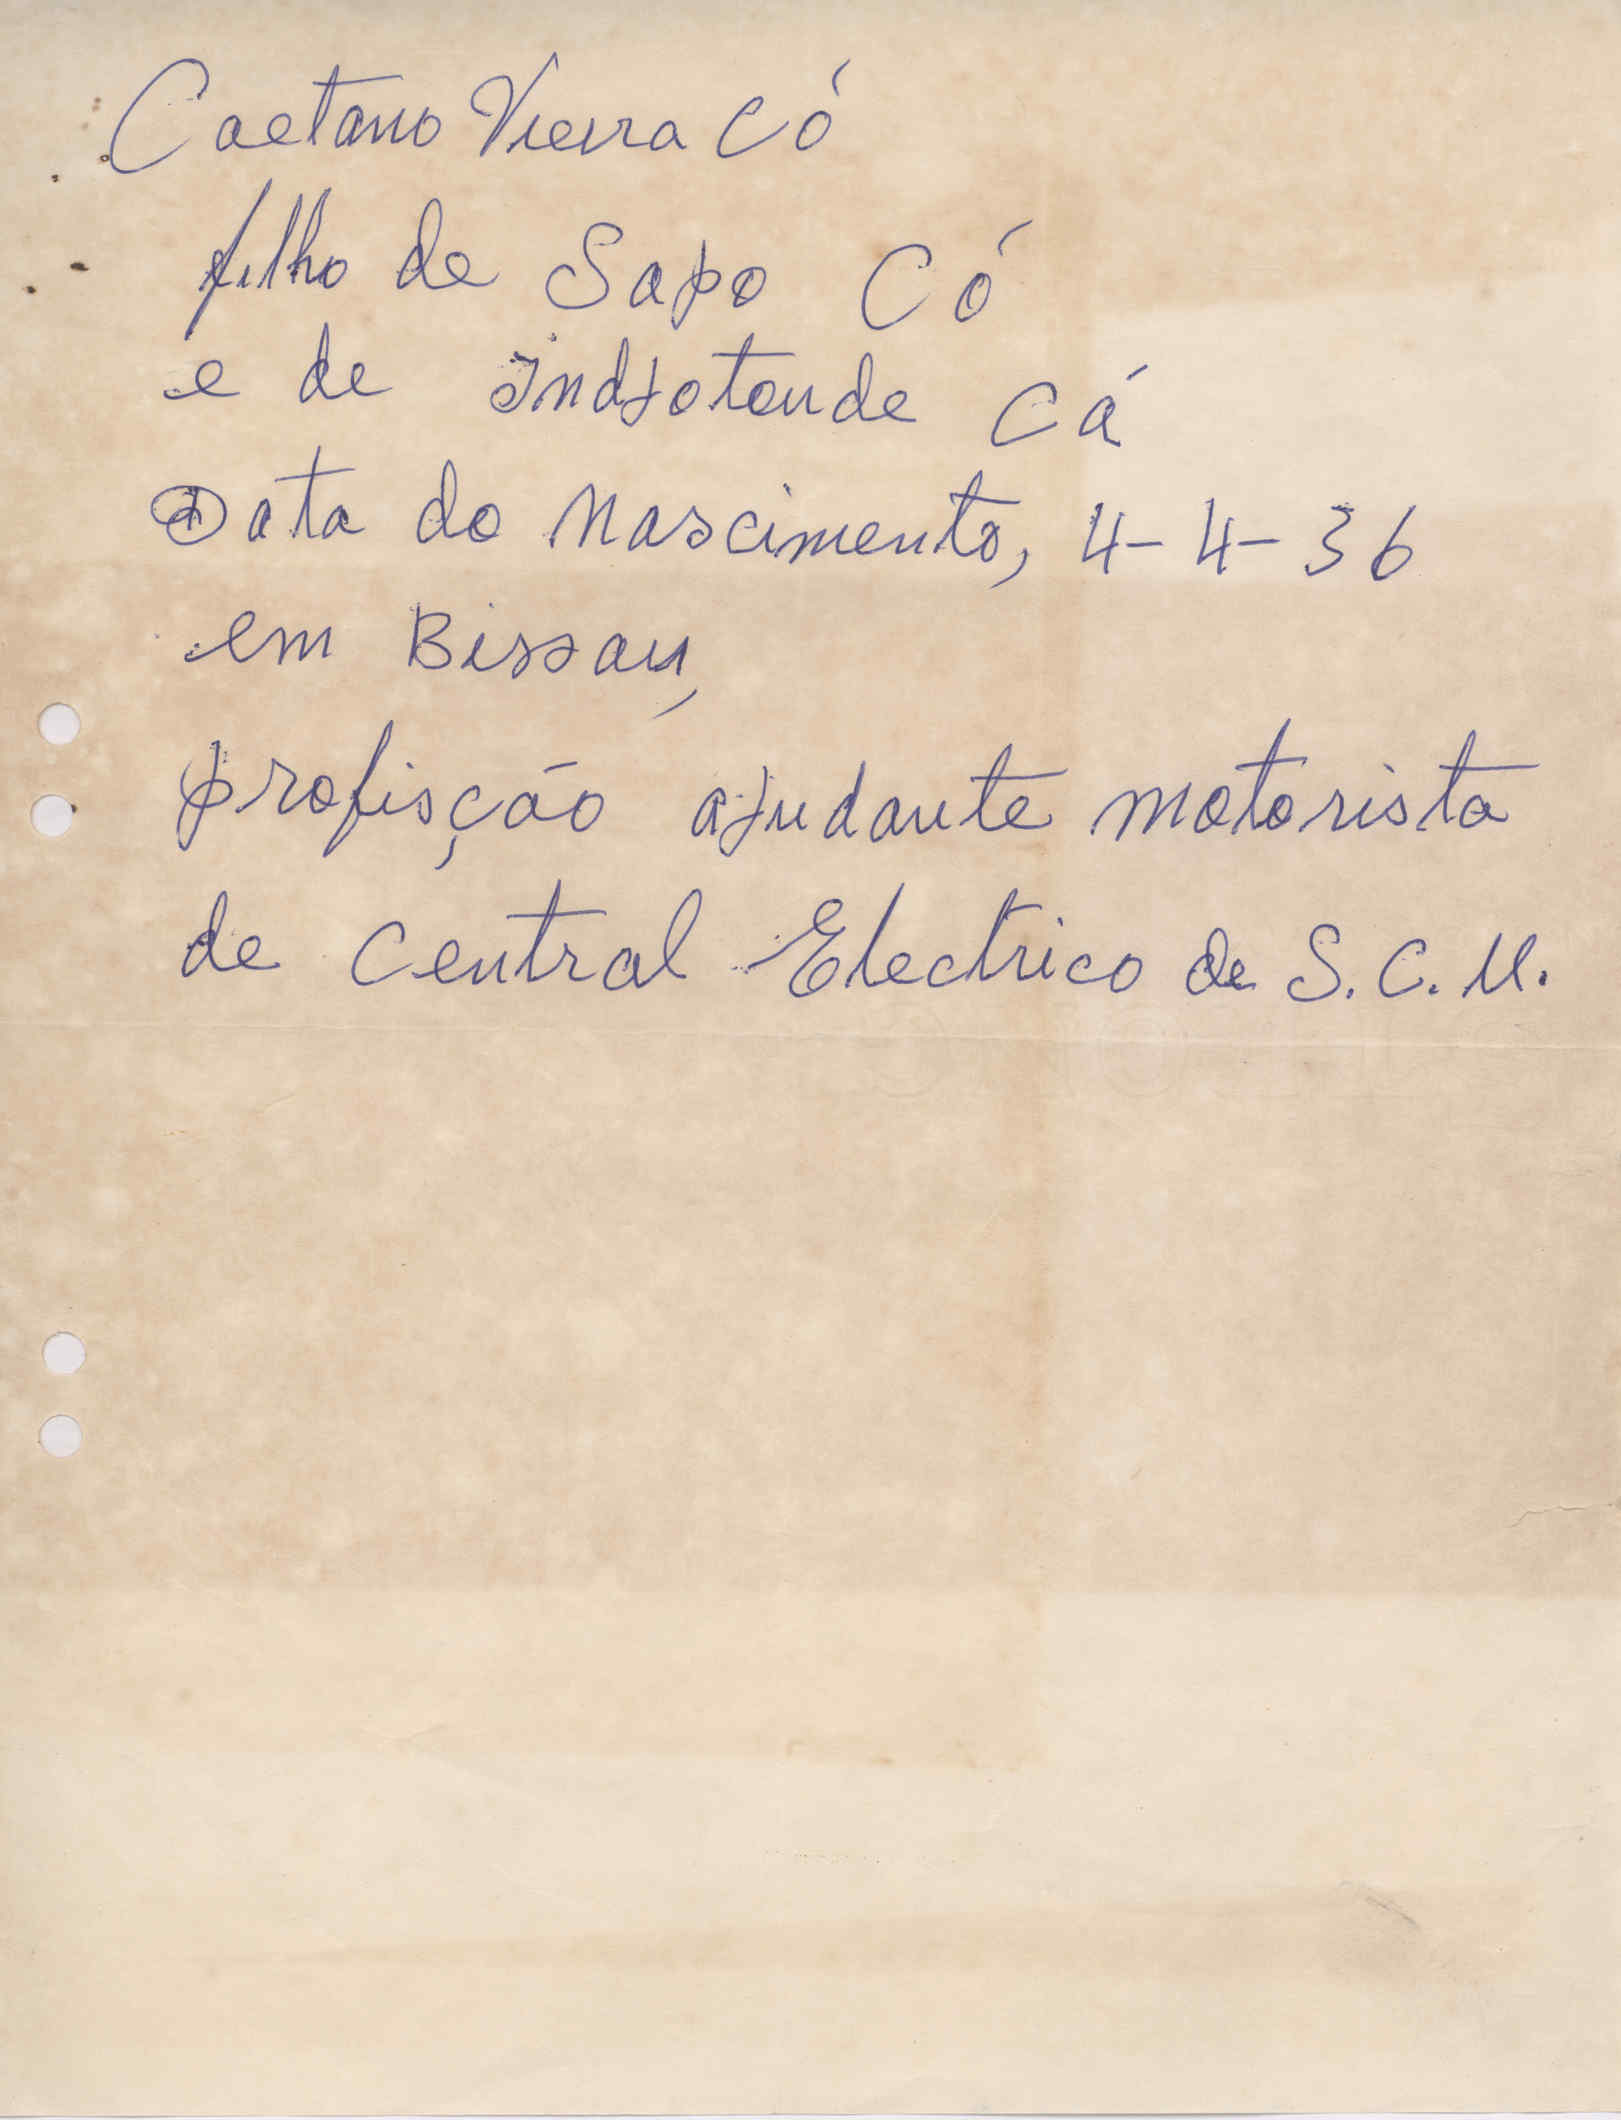 Caetano Vieira Có
filho de Sapo Có
e de Indjotende Cá
Data do Nascimento, 4-4-36
em Bissau,
profisção ajudante motorista
de Central Electrico de S. C. M.